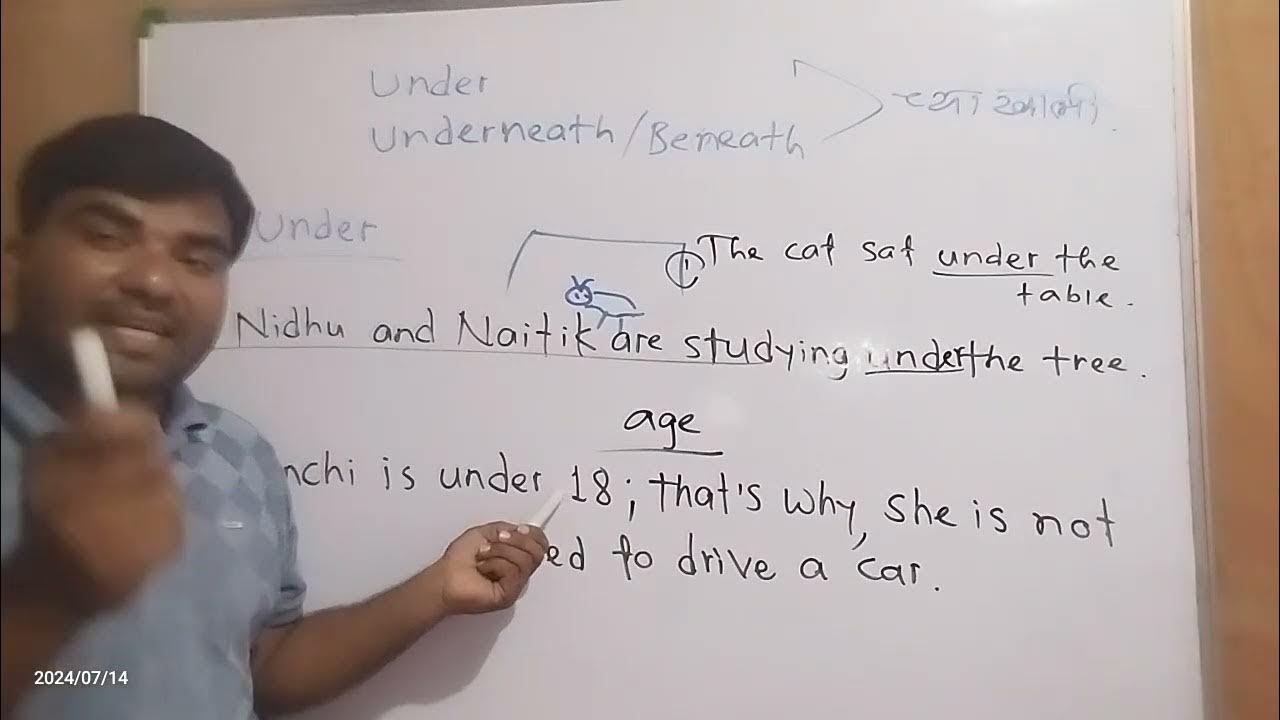 Under
Underneath/Beneath
Under
The cat sat under the
table.
Nidhu and Naitik are studying under the tree.
age
nchi is under 18; that's why, she is not
ed to drive a car.
2024/07/14